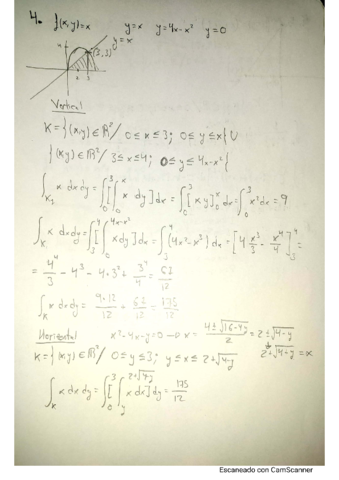 4. f(x,y)=x    y=x    y=4x-x²    y=0
y=x
4
(3,3)
Vertical
K={(x,y)∈ℝ²/ 0≤x≤3; 0≤y≤x{ U
{(x,y)∈ℝ²/ 3≤x≤4; 0≤y≤4x-x²{
∫_K₁ x dxdy = ∫₀³[∫₀ˣ x dy]dx = ∫₀³[xy]₀ˣ dx = ∫₀³ x² dx = 9
∫_K x dxdy = ∫₃⁴[∫₀^(4x-x²) x dy]dx = ∫₃⁴(4x²-x³)dx = [4 x³/3 - x⁴/4]₃⁴ =
= 4⁴/3 - 4³ - 4·3² + 3⁴/4 = 67/12
∫_K x dxdy = 9·12/12 + 67/12 = 175/12
Horizontal    x²-4x-y=0 → x = (4±√(16-4y))/2 = 2±√(4-y)
2+√(4-y) = x
K={(x,y)∈ℝ²/ 0≤y≤3; y≤x≤2+√(4-y)
∫_K x dxdy = ∫₀³[∫_y^(2+√(4-y)) x dx]dy = 175/12
Escaneado con CamScanner